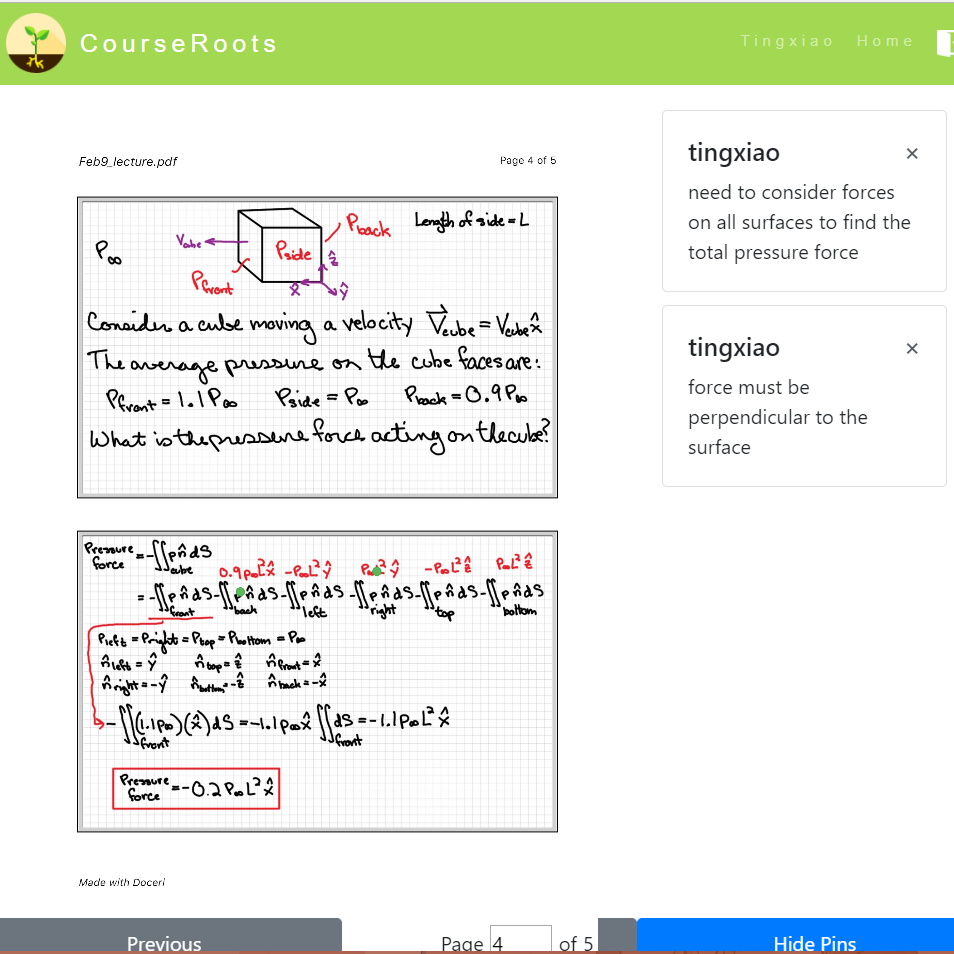 CourseRoots
Tingxiao Home
Feb9_lecture.pdf
Page 4 of 5
Length of side = L
P∞
Vcube
Pside
Pback
Pfront
ẑ
x̂
ŷ
Consider a cube moving a velocity V⃗cube = Vcube x̂
The average pressure on the cube faces are:
Pfront = 1.1 P∞ Pside = P∞ Pback = 0.9 P∞
What is the pressure force acting on the cube?
Pressure force = -∬cube p n̂ dS
0.9 p∞ L² x̂ -P∞ L² ŷ P∞ L² ŷ -P∞ L² ẑ P∞ L² ẑ
= -∬front p n̂ dS -∬back p n̂ dS -∬left p n̂ dS -∬right p n̂ dS -∬top p n̂ dS -∬bottom p n̂ dS
Pleft = Pright = Ptop = Pbottom = P∞
n̂left = ŷ n̂top = ẑ n̂front = x̂
n̂right = -ŷ n̂bottom = -ẑ n̂back = -x̂
-∬front (1.1 p∞)(x̂) dS = -1.1 p∞ x̂ ∬front dS = -1.1 p∞ L² x̂
Pressure force = -0.2 P∞ L² x̂
Made with Doceri
tingxiao ×
need to consider forces
on all surfaces to find the
total pressure force
tingxiao ×
force must be
perpendicular to the
surface
Previous
Page 4 of 5
Hide Pins